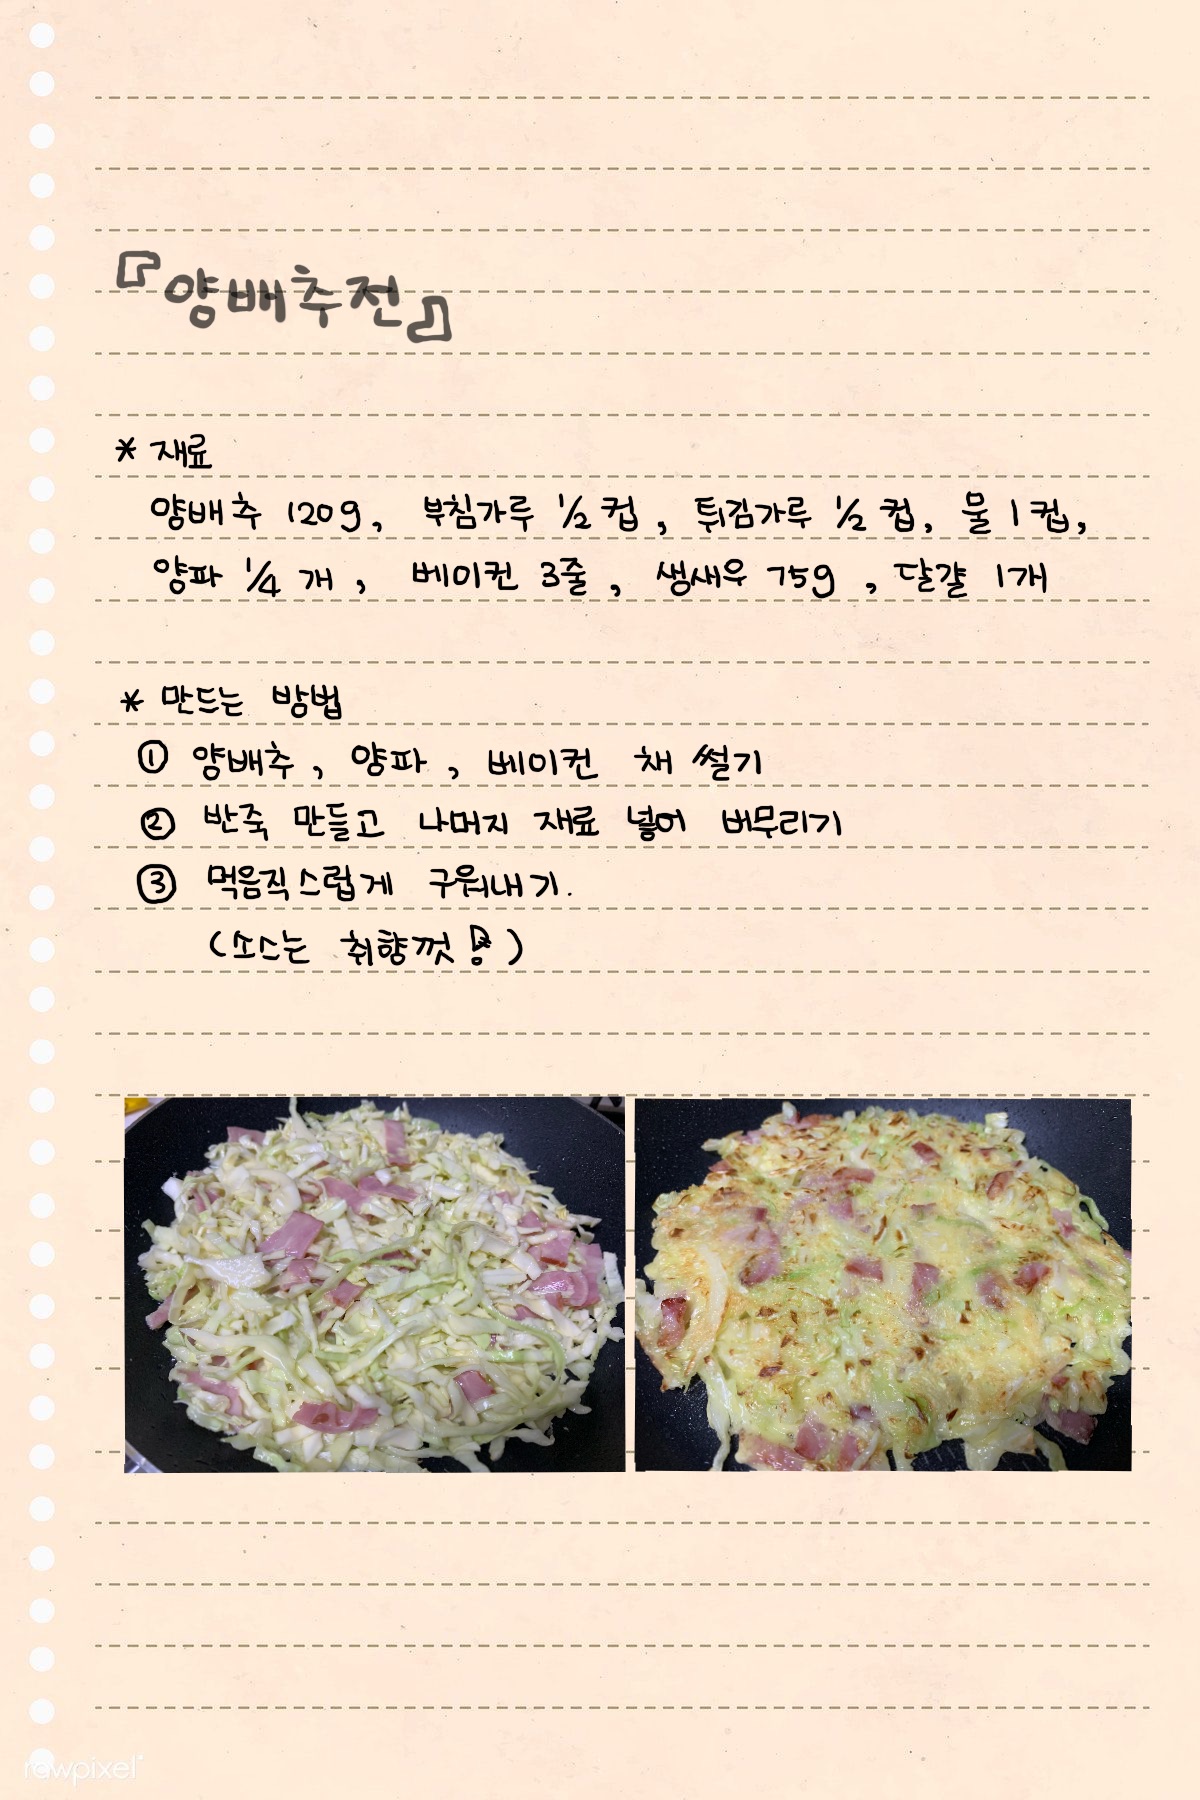 『양배추전』
* 재료
양배추 120g, 부침가루 1/2 컵, 튀김가루 1/2 컵, 물 1컵,
양파 1/4 개, 베이컨 3줄, 생새우 75g, 달걀 1개
* 만드는 방법
① 양배추, 양파, 베이컨 채 썰기
② 반죽 만들고 나머지 재료 넣어 버무리기
③ 먹음직스럽게 구워내기.
(소스는 취향껏!)
rawpixel